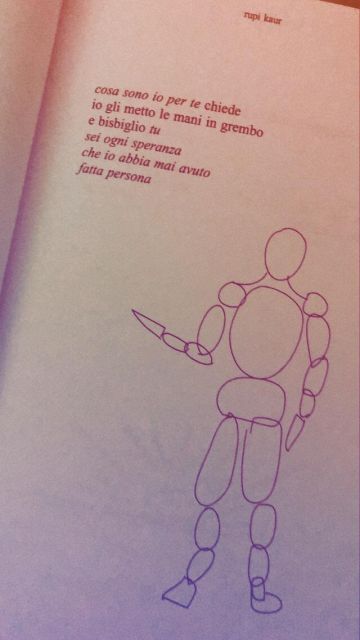 rupi kaur
cosa sono io per te chiede
io gli metto le mani in grembo
e bisbiglio tu
sei ogni speranza
che io abbia mai avuto
fatta persona